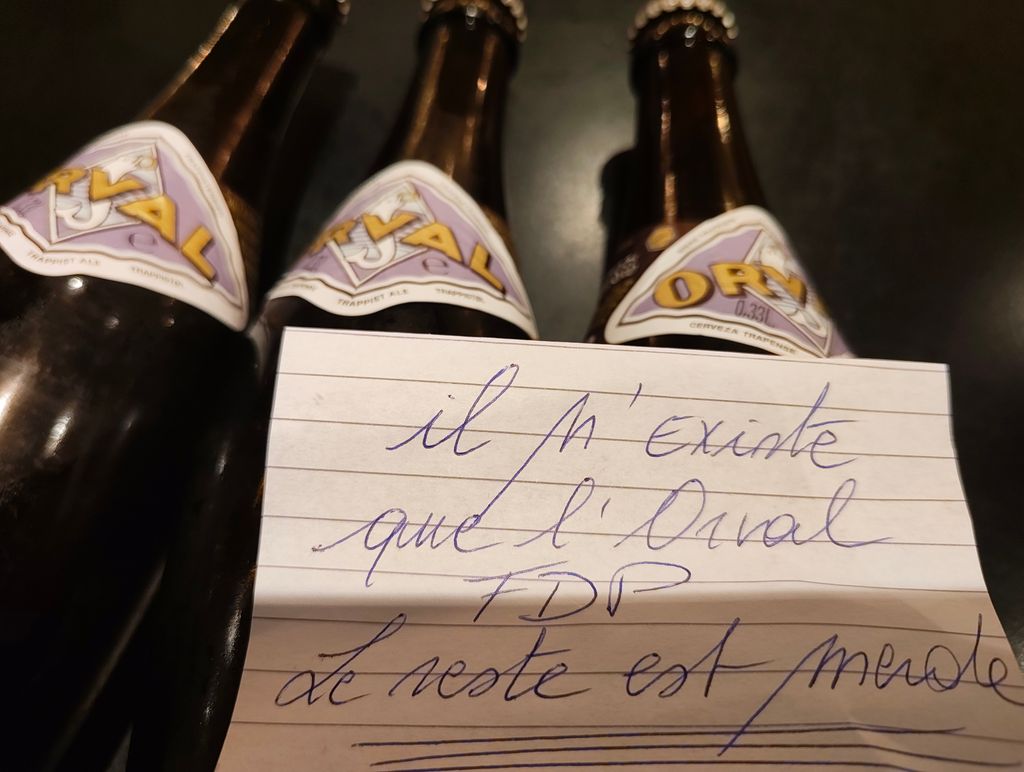 RVAL
e
TRAPPIST ALE TRAPPISTE
RVAL
e
TRAPPIST ALE TRAPPISTE
ORV
0,33L
CERVEZA TRAPENSE
il n'existe
que l'Orval
FDP
Le reste est merde